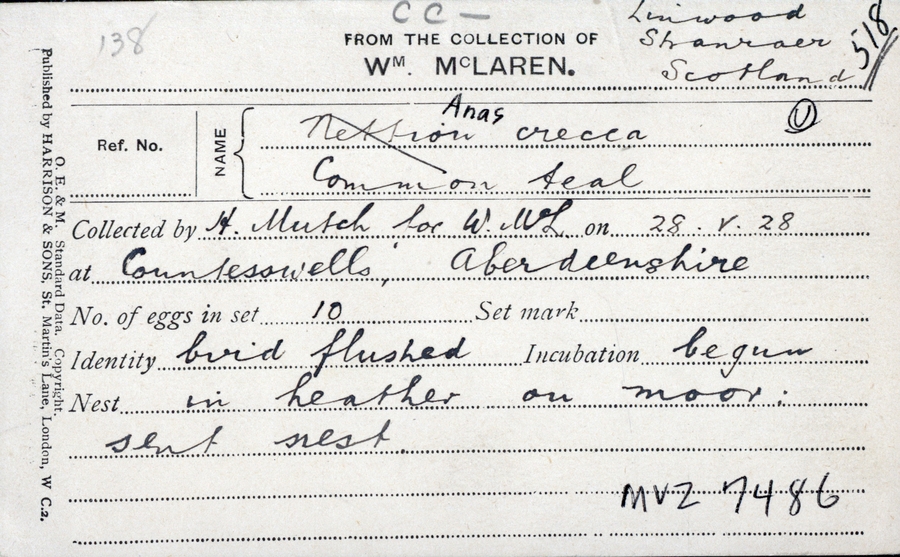 CC—
138
Linwood
Stranraer
Scotland
518
FROM THE COLLECTION OF
WM. McLAREN.
Ref. No.
NAME
Anas
Nettion crecca
U
Common teal
Collected by H. Mutch for W. McL. on 28. V. 28
at Countesswells, Aberdeenshire
No. of eggs in set 10 Set mark
Identity bird flushed Incubation begun
Nest in heather on moor:
sent nest.
MVZ 7486
O. E. & M. Standard Data. Copyright.
Published by HARRISON & SONS, St. Martin's Lane, London, W C.2.